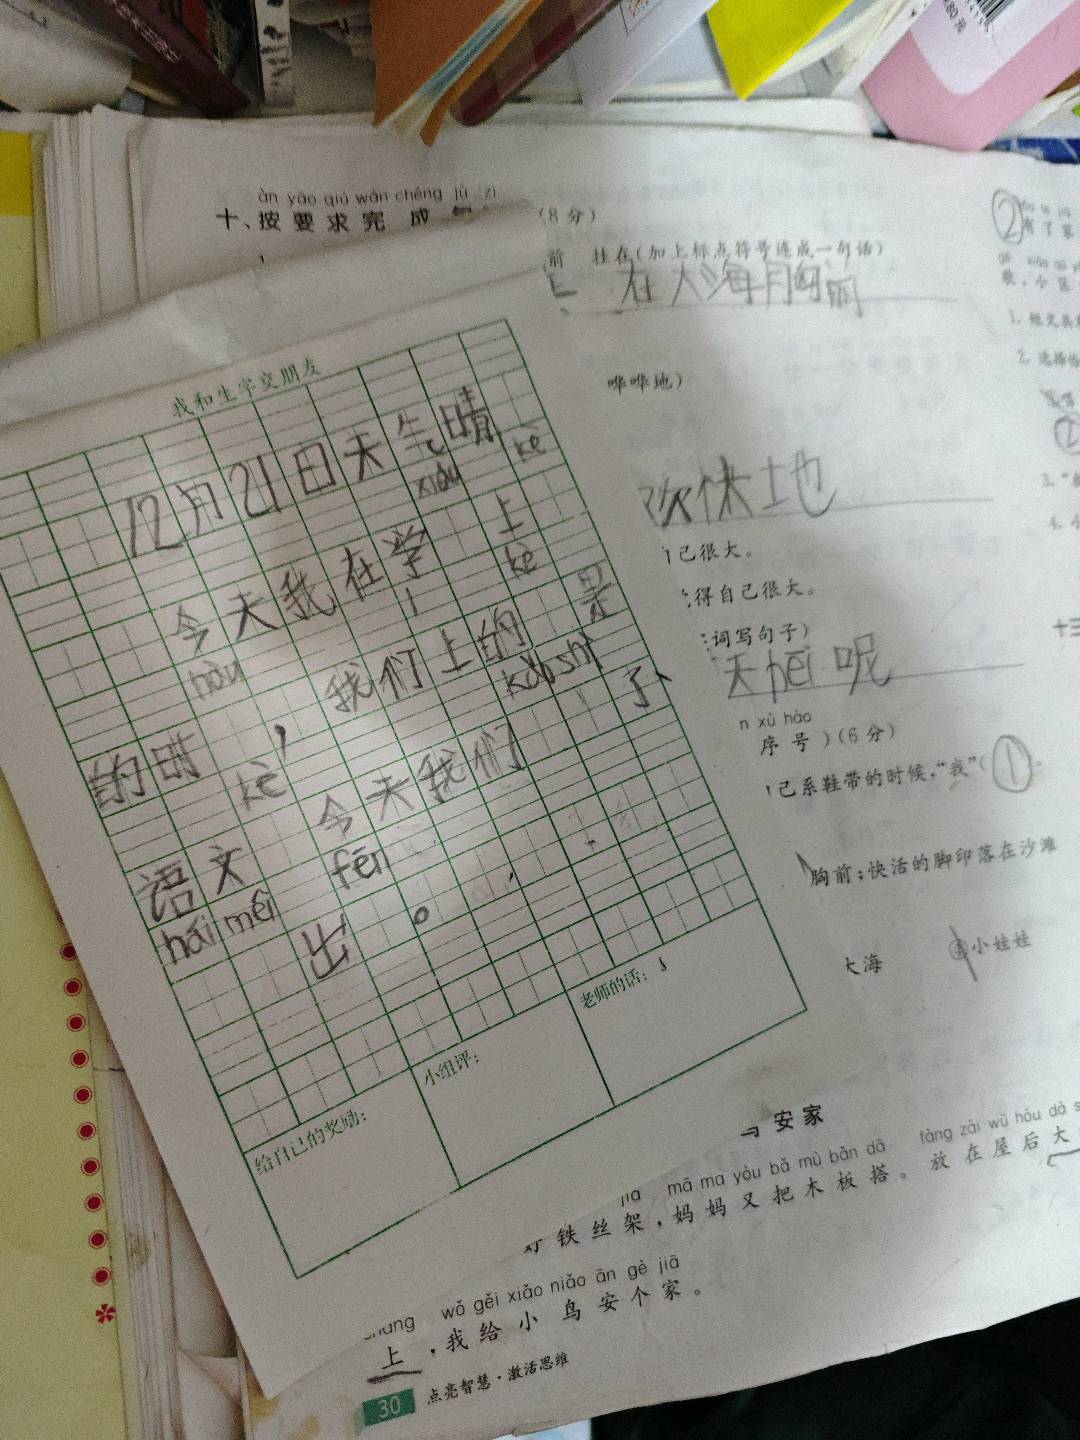 àn yāo qiú wán chéng jù zi
十、按要求完成句
(8分)
前 挂在(加上标点符号连成一句话)
在大海胸前
哗哗地)
欢快地
己很大。
得自己很大。
词写句子)
天hēi呢
n xù hào
序号)(6分)
己系鞋带的时候,“我”(①
胸前;快活的脚印落在沙滩
大海
小娃娃
②
1.
2. 选择
3.
4. 小
十三
我和生字交朋友
12月21日天气晴
xiào kè
今天我在学 上
hòu kè
的时 , 我们上的是
kè kǎoshì
语文 今天我们 了、
hái méi fēn
出 。
给自己的奖励:
小组评:
老师的话:
安家
jià mā ma yòu bǎ mù bǎn dā fàng zài wū hòu dà
铁丝架,妈妈又把木板搭。放在屋后大
wǒ gěi xiǎo niǎo ān gè jiā
上,我给小鸟安个家。
30 点亮智慧·激活思维